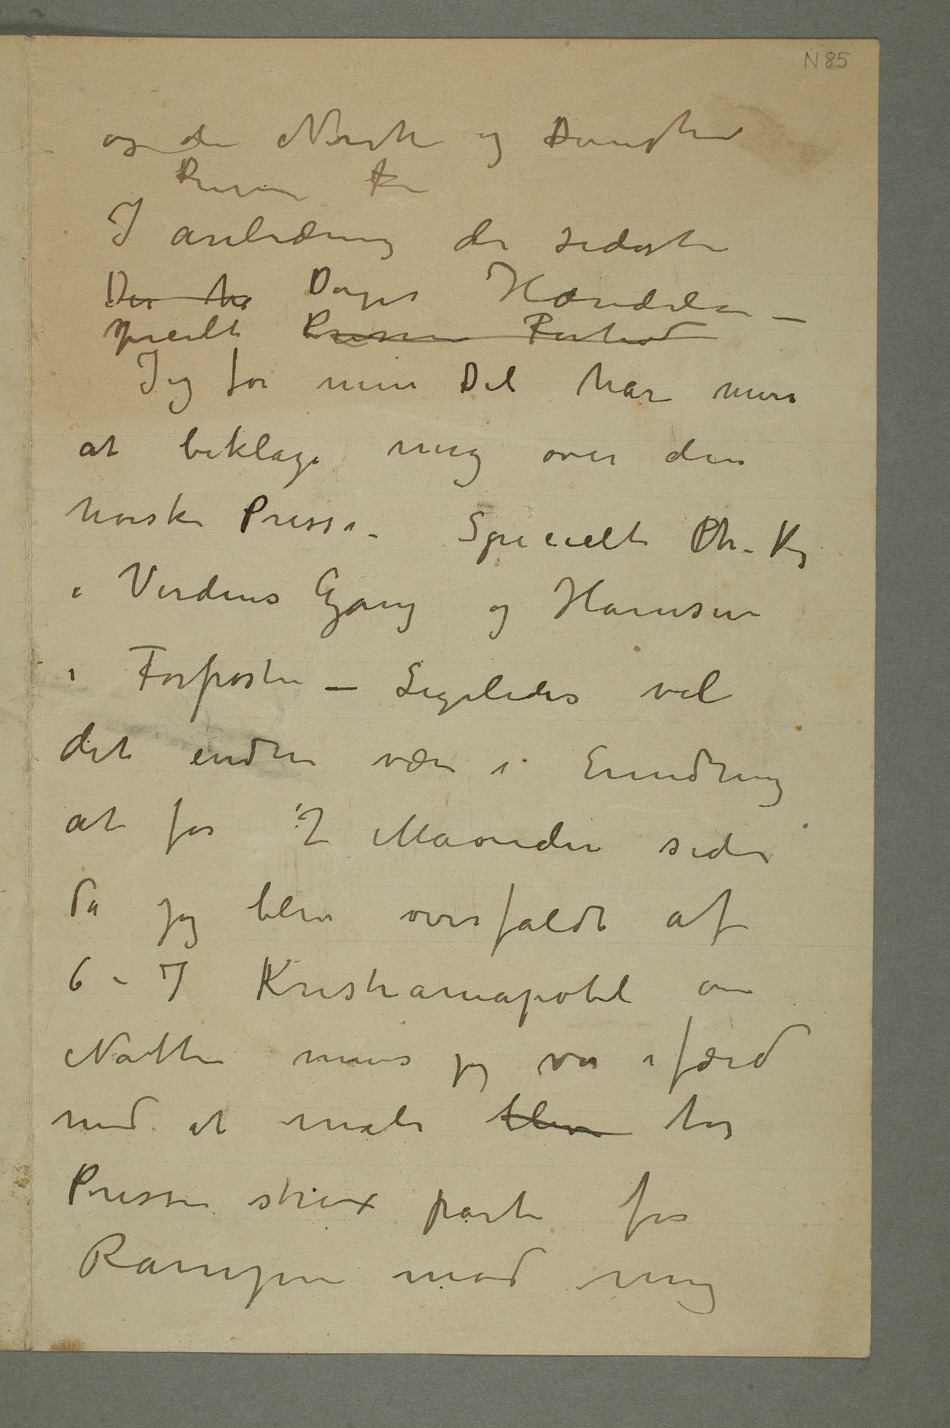 N 85
og de Norske og Danske
I anledning de sidste
Der ha Dages Hændelser –
specielt Pressen
Jeg for min Del har mere
at beklage mig over den
norske Presse. Specielt Chr. Kg
i Verdens Gang og Hansen
i Forposten – Ligeledes vil
det endnu være i Erindring
at for 2 Maaneder siden
da jeg blev overfaldt af
6-7 Kristianiapøbel om
Natten mens jeg var ifærd
med at male blev tog
Pressen strax parti for
Rampen mod mig